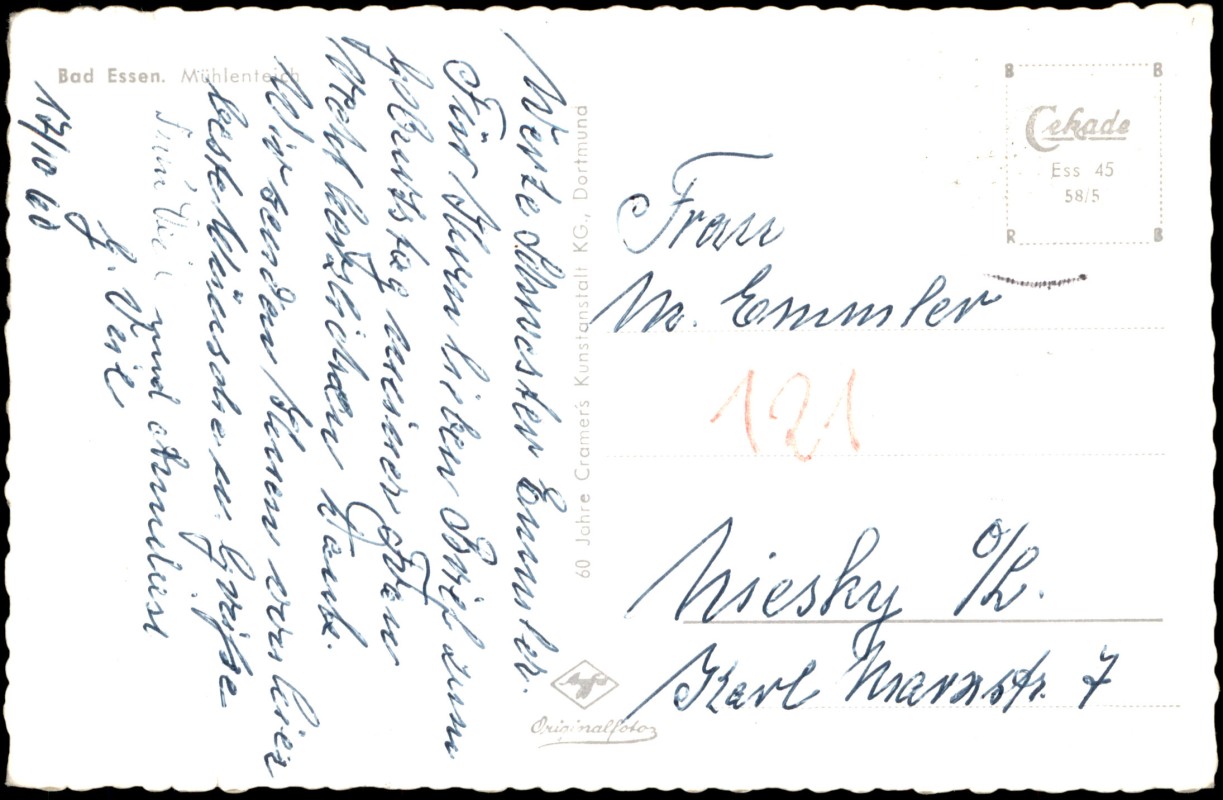 Bad Essen. Mühlenteich
Werte Schwester Emmler.
Für Ihren lieben Brief zum
Geburtstag meiner Frau
recht herzlichen Dank.
Wir senden Ihnen von hier
beste Wünsche u. Grüße
und Anneliese
17/10 60
60 Jahre Cramers Kunstanstalt KG., Dortmund
Originalfoto
B B
Cekade
Ess 45
58/5
R B
Frau
M. Emmler
121
Niesky O/L.
Karl Marxstr. 7